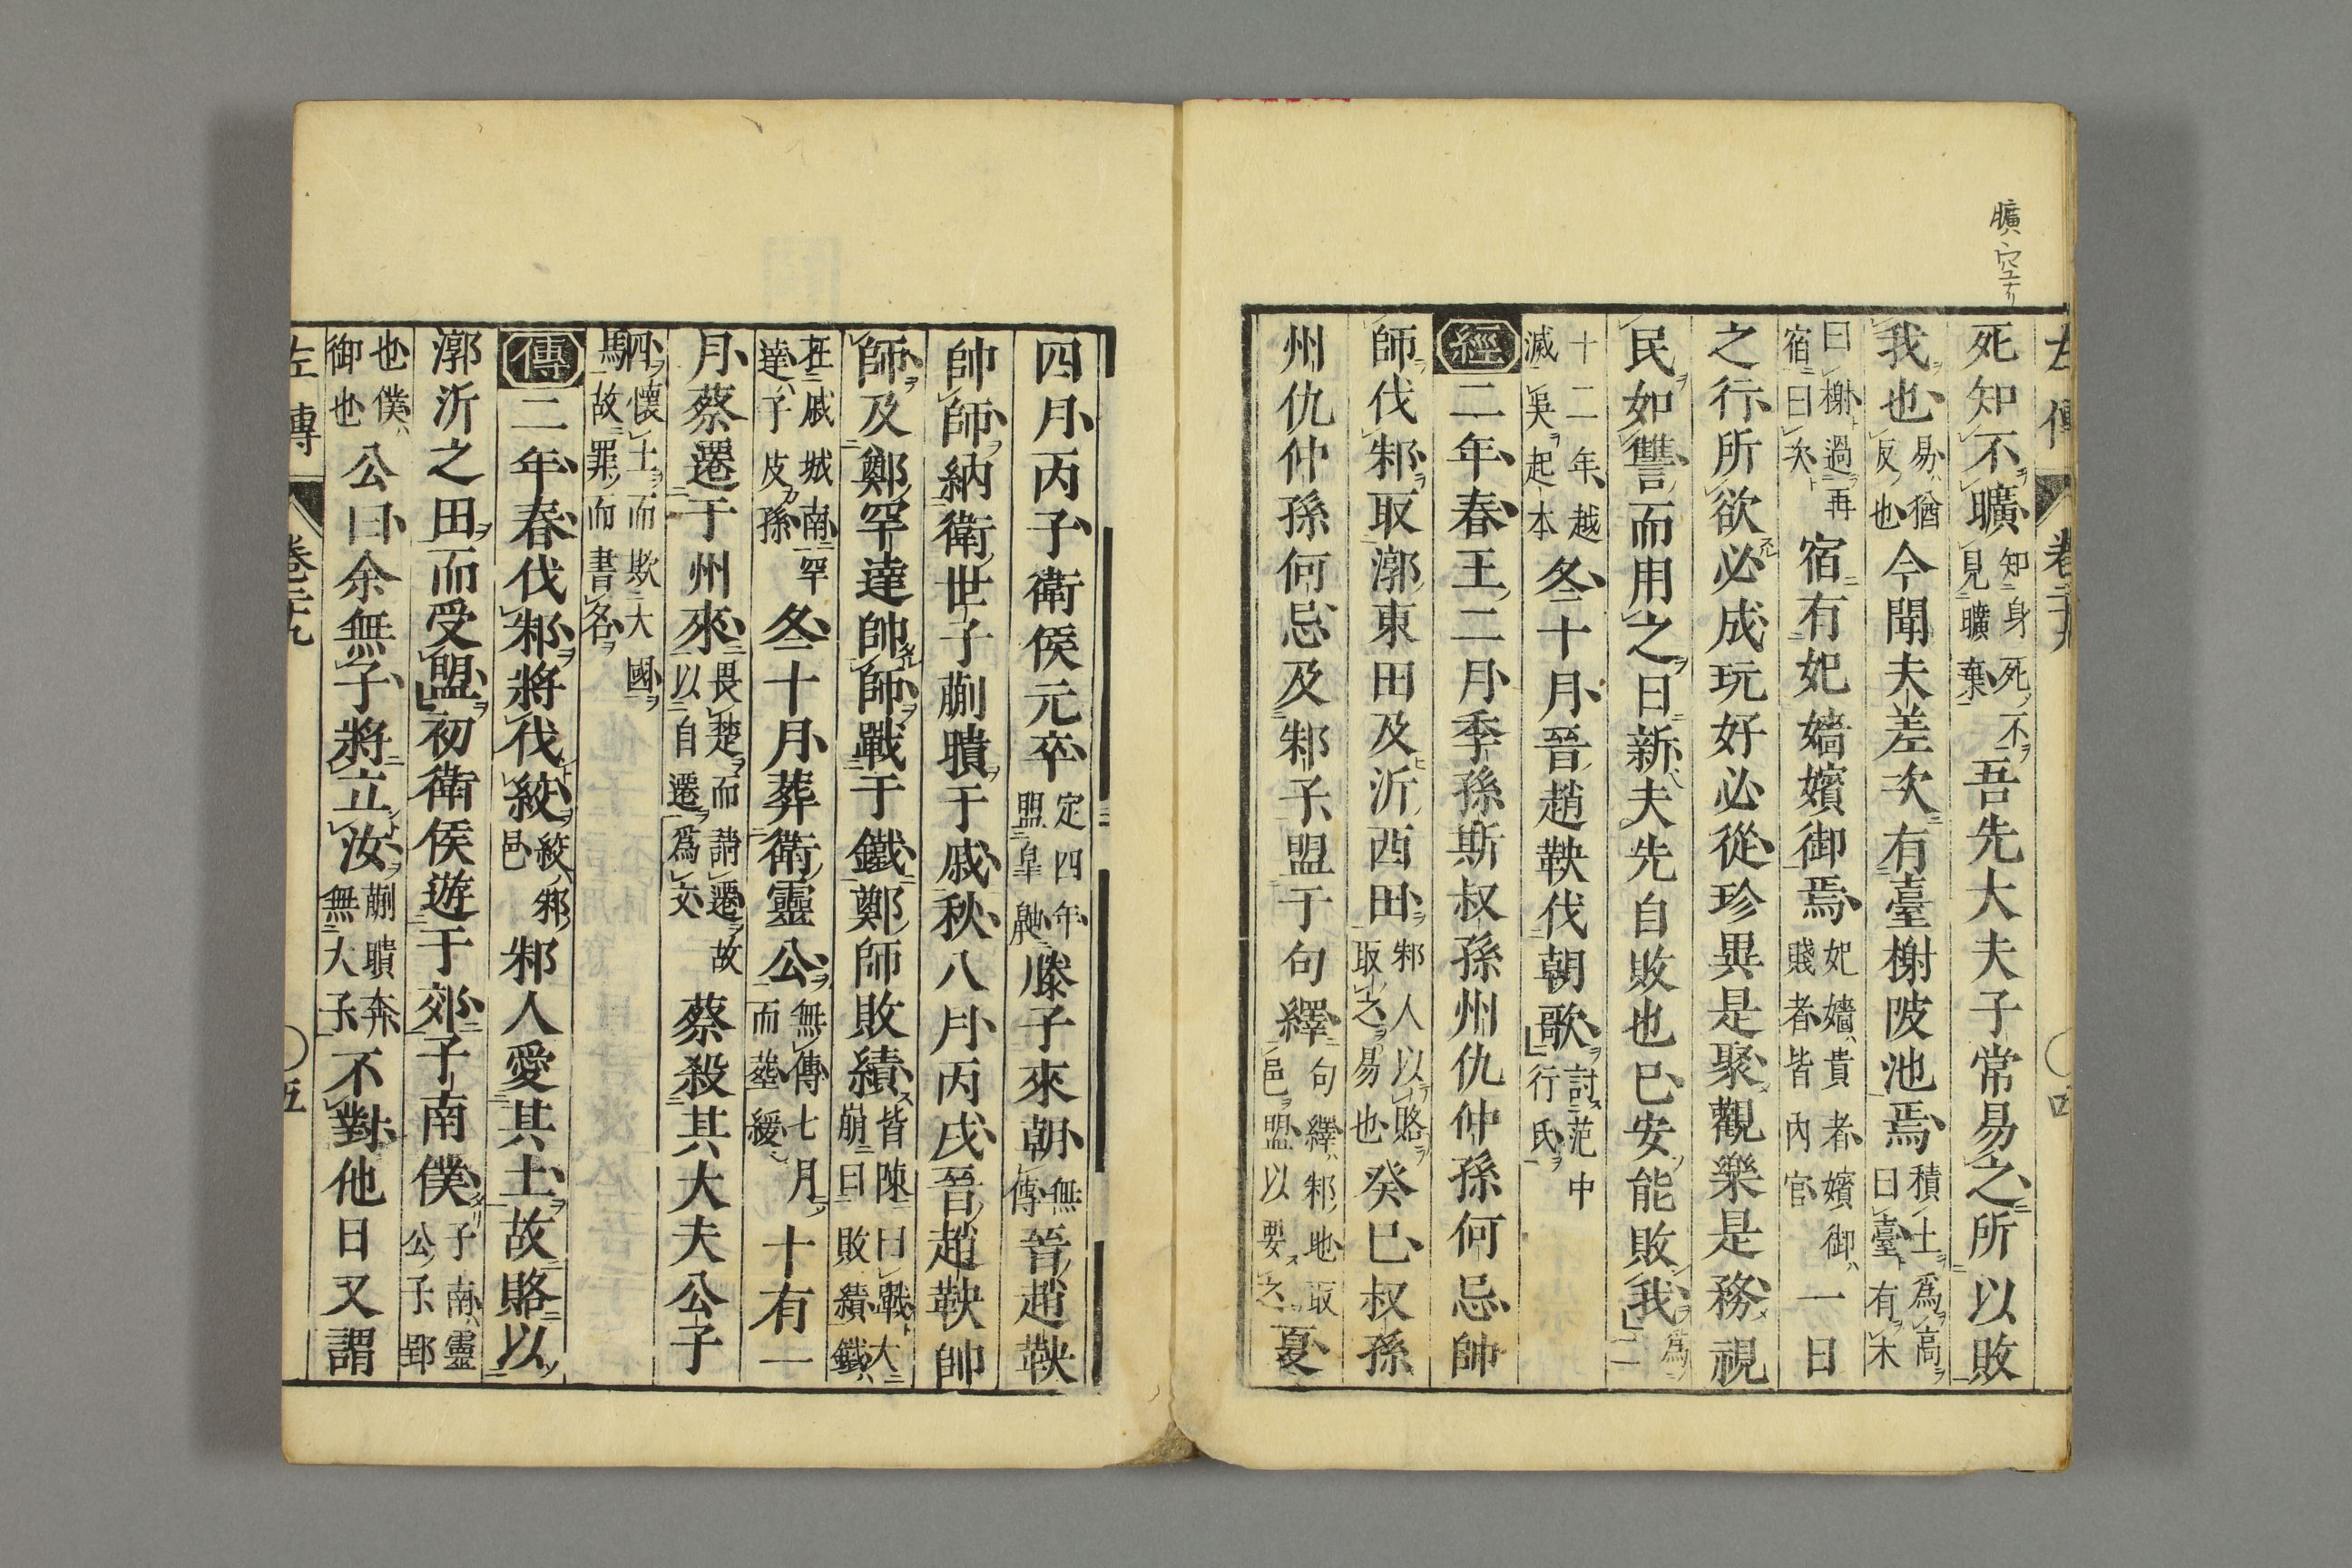 曠空ナリ
左傳 卷二十九 ○四
死知不曠知身死不見曠棄吾先大夫子常易之所以敗
我也易猶反也今聞夫差次有臺榭陂池焉積土爲高曰臺有木
曰榭過再宿曰次宿有妃嬙嬪御焉妃嬙貴者嬪御賤者皆內官一日
之行所欲必成玩好必從珍異是聚觀樂是務視
民如讐而用之日新夫先自敗也巳安能敗我爲
十二年越滅吳起本冬十月晉趙鞅伐朝歌討范中行氏
經二年春王二月季孫斯叔孫州仇仲孫何忌帥
師伐邾取漷東田及沂西田邾人以賂取之易也癸巳叔孫
州仇仲孫何忌及邾子盟于句繹句繹邾地取邑盟以要之夏
四月丙子衛侯元卒定四年盟皐鼬滕子來朝無傳晉趙鞅
帥師納衛世子蒯聵于戚秋八月丙戌晉趙鞅帥
師及鄭罕達帥師戰于鐵鄭師敗績皆陳曰戰大崩曰敗績鐵
在戚城南罕達子皮孫冬十月葬衛靈公無傳七月而葬緩十有一
月蔡遷于州來畏楚而請遷故以自遷爲文蔡殺其大夫公子
駟懷土而欺大國故罪而書名
傳二年春伐邾將伐絞絞邾邑邾人愛其土故賂以
漷沂之田而受盟初衛侯遊于郊子南僕子南靈公子郢
也僕御也公曰余無子將立汝蒯聵奔無大子不對他日又謂
左傳 卷二十九 ○五